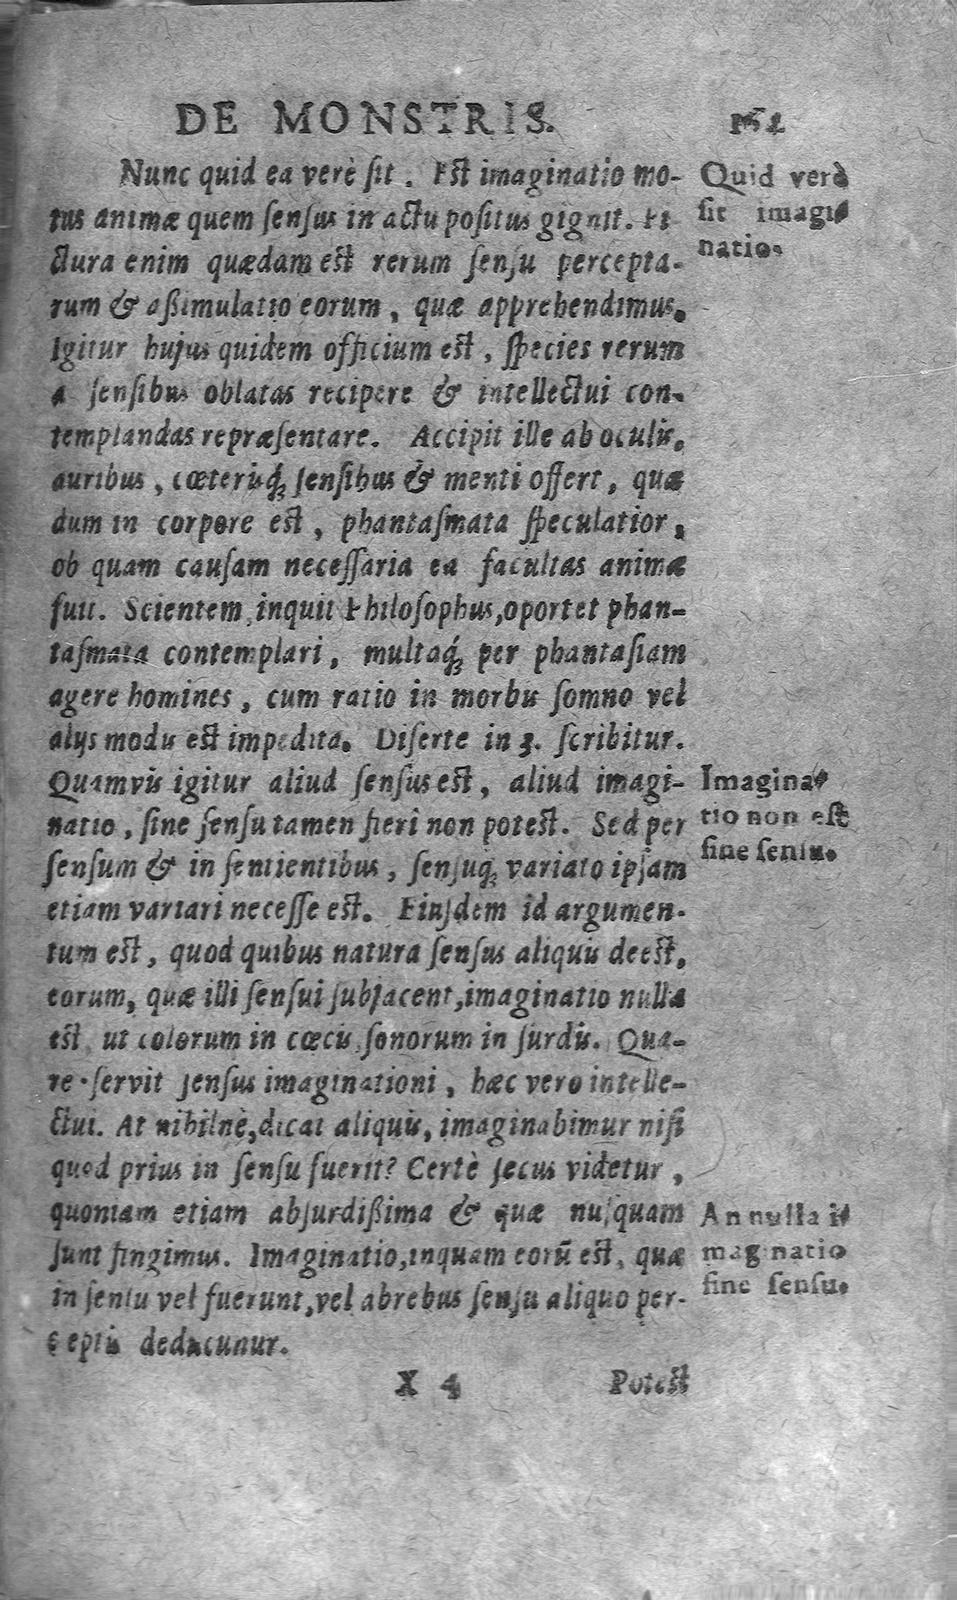 DE MONSTRIS.
Nunc quid ea verè ſit. Eſt imaginatio mo-
tus animæ quem ſenſus in actu poſitus gignit. Pi
ctura enim quædam est rerum ſenſu percepta-
rum & aßimulatio eorum, quæ apprehendimus.
Igitur hujus quidem officium est, ſpecies rerum
a ſenſibus oblatas recipere & intellectui con-
templandas repræſentare. Accipit ille ab oculis,
auribus, cœteriſq́; ſenſibus & menti offert, quæ
dum in corpore est, phantaſmata ſpeculatior,
ob quam cauſam neceſſaria ea facultas animæ
fuit. Scientem, inquit Philoſophus, oportet phan-
taſmata contemplari, multaq́; per phantaſiam
agere homines, cum ratio in morbis ſomno vel
alijs modis est impedita. Diſerte in 3. ſcribitur.
Quamvis igitur aliud ſenſus est, aliud imagi-
natio, ſine ſenſu tamen fieri non potest. Sed per
ſenſum & in ſentientibus, ſenſuq́; variato ipſam
etiam variari neceſſe est. Eiuſdem id argumen-
tum est, quod quibus natura ſenſus aliquis deest,
eorum, quæ illi ſenſui ſubjacent, imaginatio nulla
est, ut colorum in cœcis, ſonorum in ſurdis. Qua-
re ſervit ſenſus imaginationi, hæc vero intelle-
ctui. At nihilnè, dicat aliquis, imaginabimur niſi
quod prius in ſenſu fuerit? Certè ſecus videtur,
quoniam etiam abſurdißima & quæ nuſquam
ſunt fingimus. Imaginatio, inquam eorũ est, quæ
in ſenſu vel fuerunt, vel ab rebus ſenſu aliquo per-
ceptis deducunur.
X 4 Potest
Quid verè
ſit imagi
natio.
Imagina-
tio non eſt
ſine ſenſu.
An nulla i-
maginatio
ſine ſenſu.